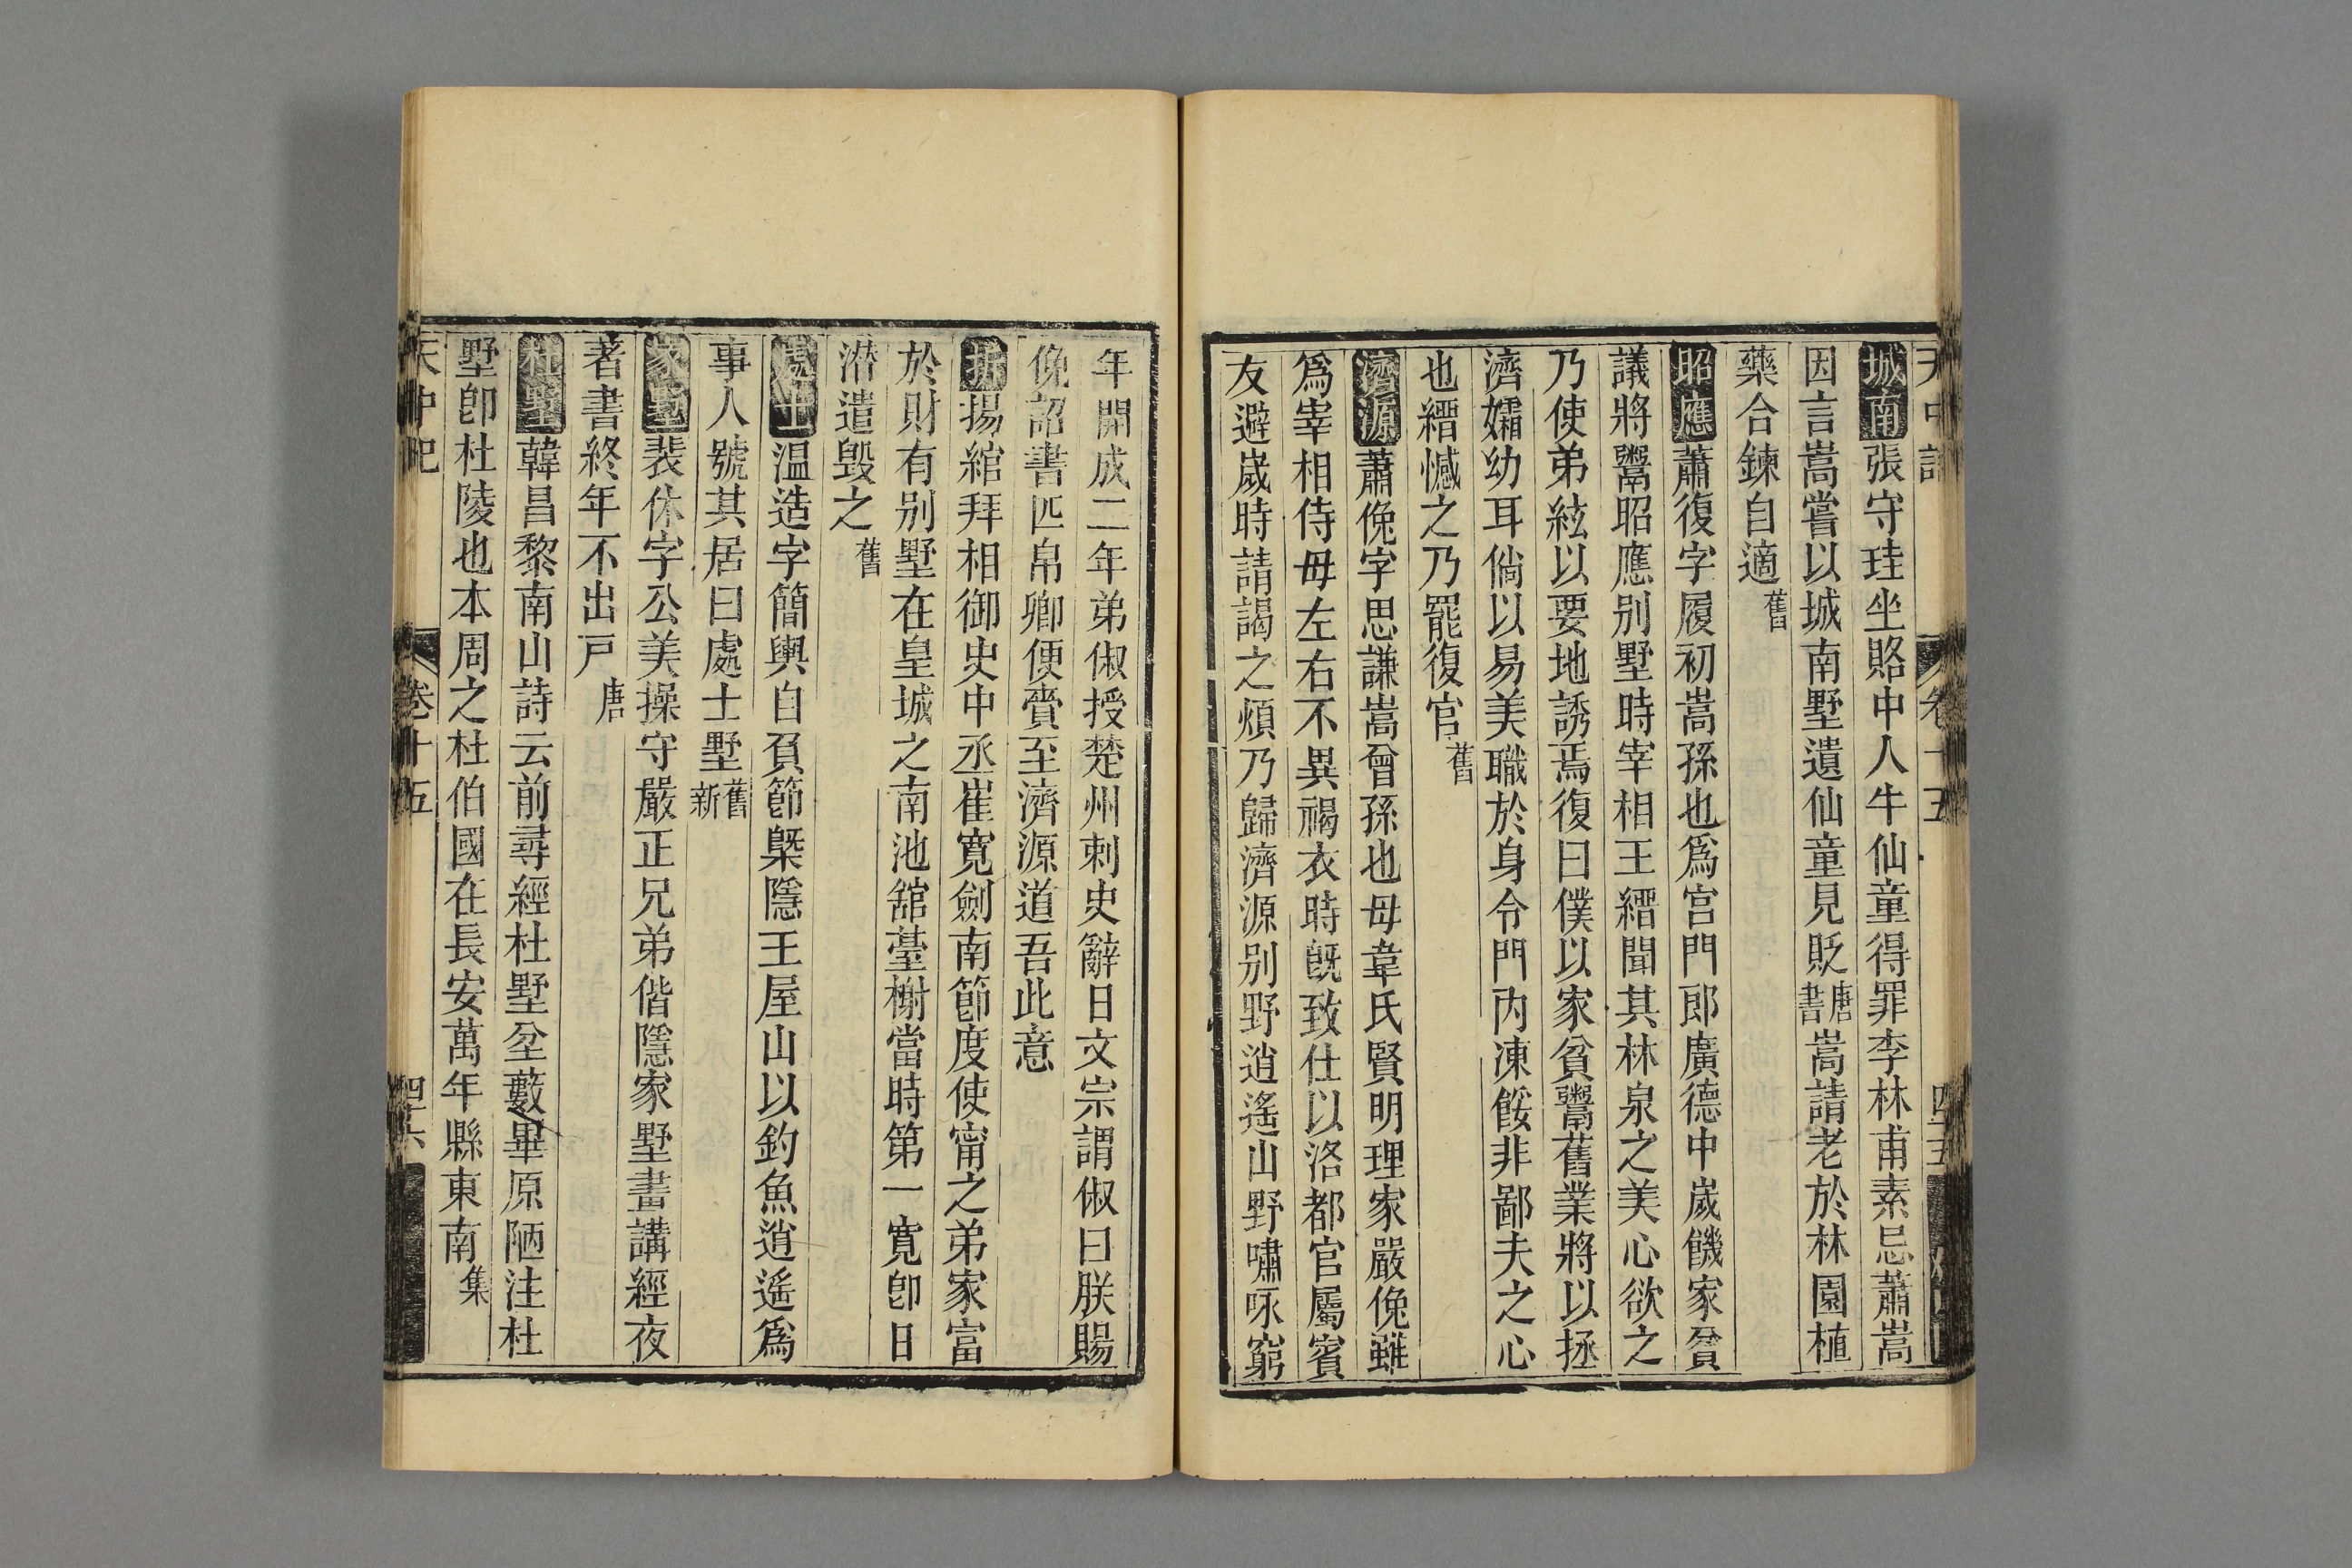 天中記 卷十五 四十五
城南張守珪坐賂中人牛仙童得罪李林甫素忌蕭嵩
因言嵩嘗以城南墅遺仙童見貶唐書嵩請老於林園植
藥合鍊自適舊
昭應蕭復字履初嵩孫也爲宮門郎廣德中歲饑家貧
議將鬻昭應别墅時宰相王縉聞其林泉之美心欲之
乃使弟絃以要地誘焉復曰僕以家貧鬻舊業將以拯
濟孀幼耳倘以易美職於身令門内凍餒非鄙夫之心
也縉憾之乃罷復官舊
濟源蕭俛字思謙嵩曾孫也母韋氏賢明理家嚴俛雖
爲宰相侍母左右不異褐衣時旣致仕以洛都官屬賓
友避歲時請謁之煩乃歸濟源别野逍遙山野嘯咏窮
年開成二年弟俶授楚州刺史辭日文宗謂俶曰朕賜
俛詔書匹帛卿便賫至濟源道吾此意
折揚綰拜相御史中丞崔寛劍南節度使甯之弟家富
於財有别墅在皇城之南池舘臺榭當時第一寛卽日
潜遣毁之舊
處士温造字簡輿自負節槩隱王屋山以釣魚逍遙爲
事人號其居曰處士墅舊新
家墅裴休字公美操守嚴正兄弟偕隱家墅晝講經夜
著書終年不出戸唐
杜墅韓昌黎南山詩云前尋經杜墅坌蔽畢原陋注杜
墅卽杜陵也本周之杜伯國在長安萬年縣東南集
天中記 卷十五 四十六